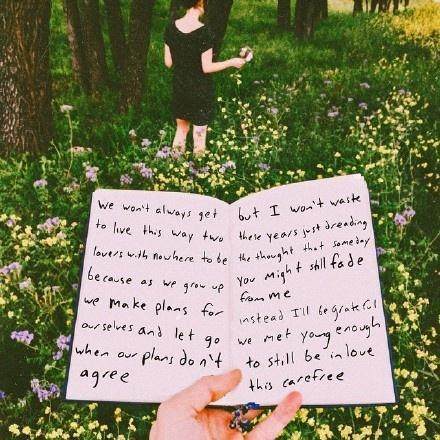 we won't always get
to live this way two
lovers with nowhere to be
because as we grow up
we make plans for
ourselves and let go
when our plans don't
agree
but I won't waste
these years just dreading
the thought that someday
you might still fade
from me
instead I'll be grateful
we met young enough
to still be in love
this carefree